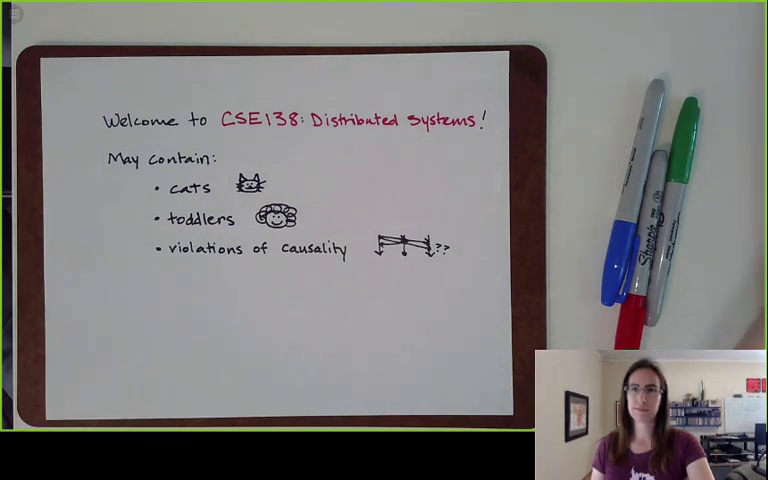 Welcome to CSE138: Distributed Systems!
May contain:
• cats
• toddlers
• violations of causality ??
Sharpie